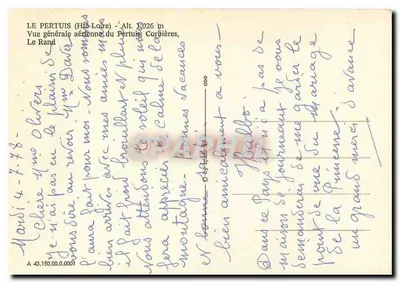 LE PERTUIS (Hte-Loire) - Alt. 1.026 m
Vue générale aérienne du Pertuis Corbières,
Le Rand
Mardi 4-7-78-
Chère Mme Oliveri
Je n'ai pas eu le plaisir de
vous dire au revoir. Mme Davè
l'aura fait pour moi. Nous sommes
bien arrivés avec mes années mes
il fait froid brouillard et pluie
Nous attendons le soleil qui nous
fera apprécier la calme de la
montagne. Bonnes vacances
et bonne
bien amicalement à vous-
Dans ce Pays il n'y a pas de
maison de journeaux je vous
demanderai de me garder le
point de vue du mariage
de la Princesse.
un grand merci d'avance
A 43.150.00.0.0001